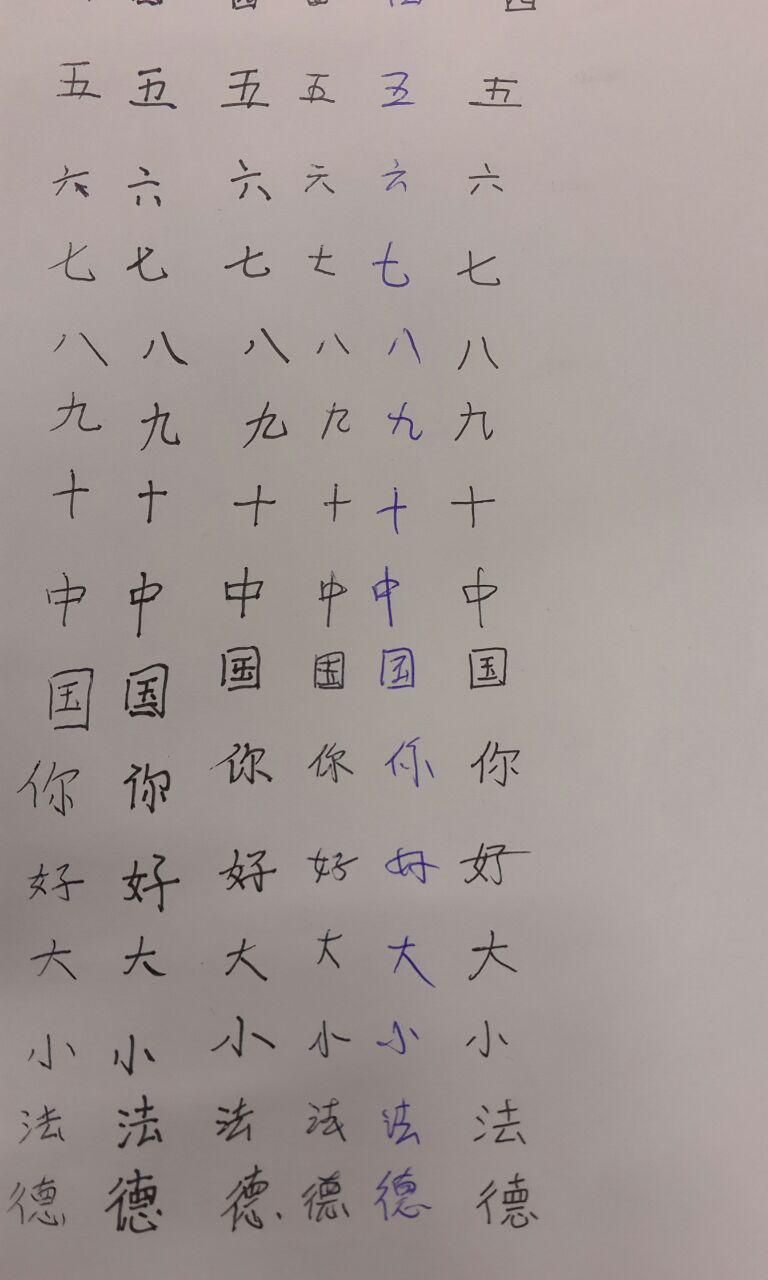 五 五 五 五 五 五
六 六 六 六 六 六
七 七 七 七 七 七
八 八 八 八 八 八
九 九 九 九 九 九
十 十 十 十 十 十
中 中 中 中 中 中
国 国 国 国 国 国
你 你 你 你 你 你
好 好 好 好 好 好
大 大 大 大 大 大
小 小 小 小 小 小
法 法 法 法 法 法
德 德 德 德 德 德